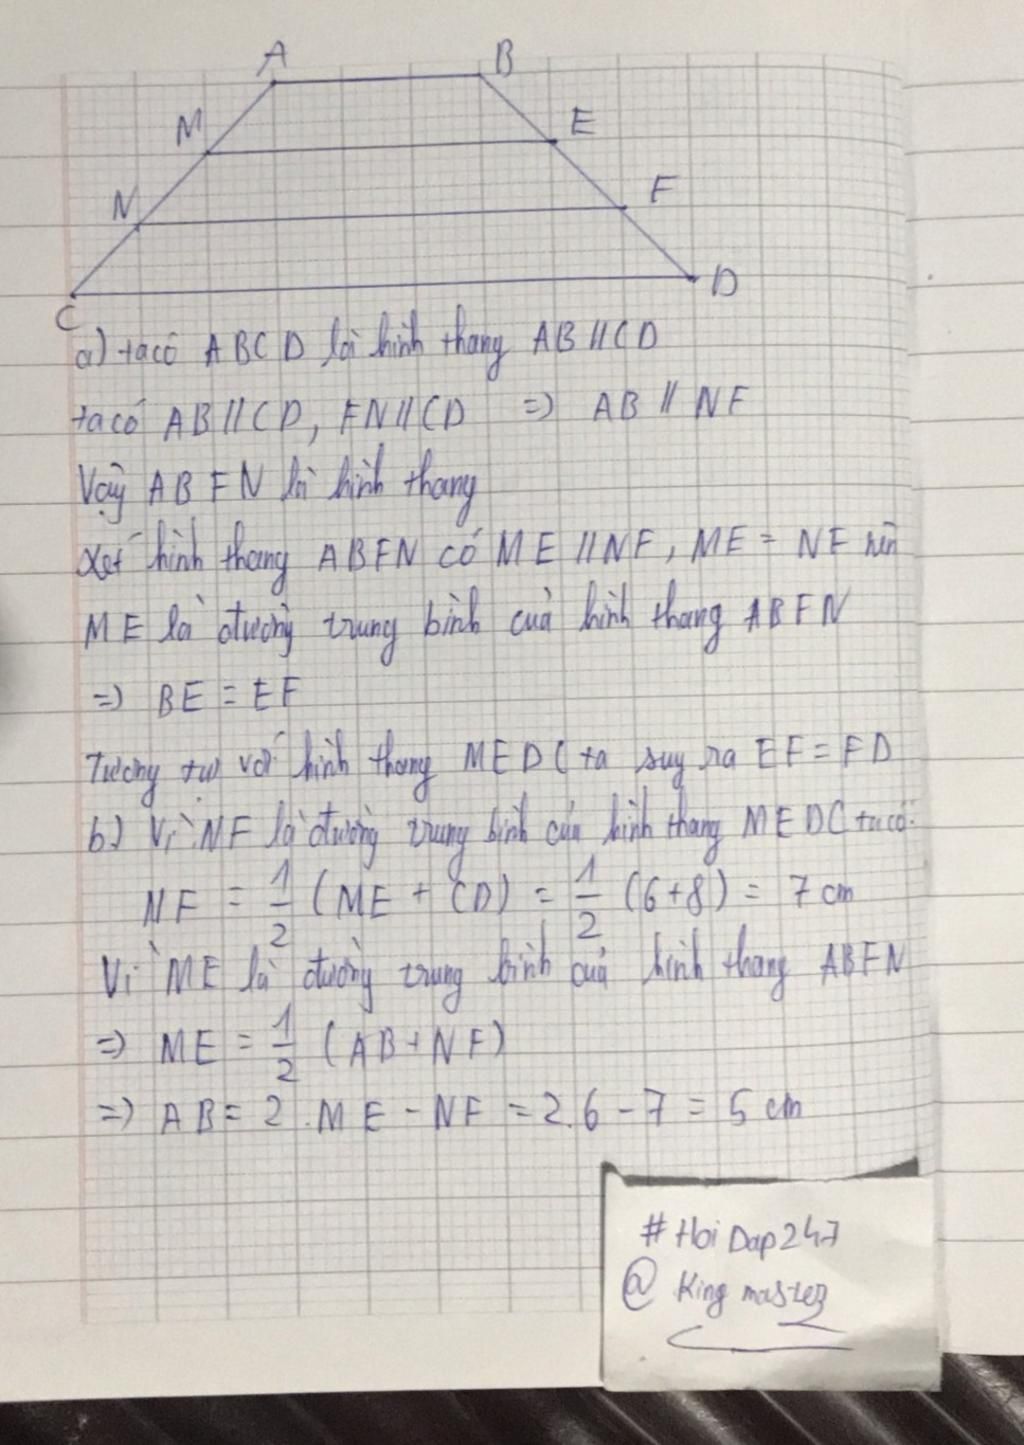 A B
M E
N F
C D
a) ta có ABCD là hình thang AB//CD
ta có AB//CD, FN//CD => AB // NF
Vậy ABFN là hình thang
Xét hình thang ABFN có ME//NF, ME = NF nên
ME là đường trung bình của hình thang ABFN
=> BE = EF
Tương tự với hình thang MEDC ta suy ra EF = FD
b) Vì NF là đường trung bình của hình thang MEDC ta có:
NF = 1/2 (ME + CD) = 1/2 (6+8) = 7 cm
Vì ME là đường trung bình của hình thang ABFN
=> ME = 1/2 (AB+NF)
=> AB = 2.ME - NF = 2.6 - 7 = 5 cm
# Hoi Dap 247
@ King master